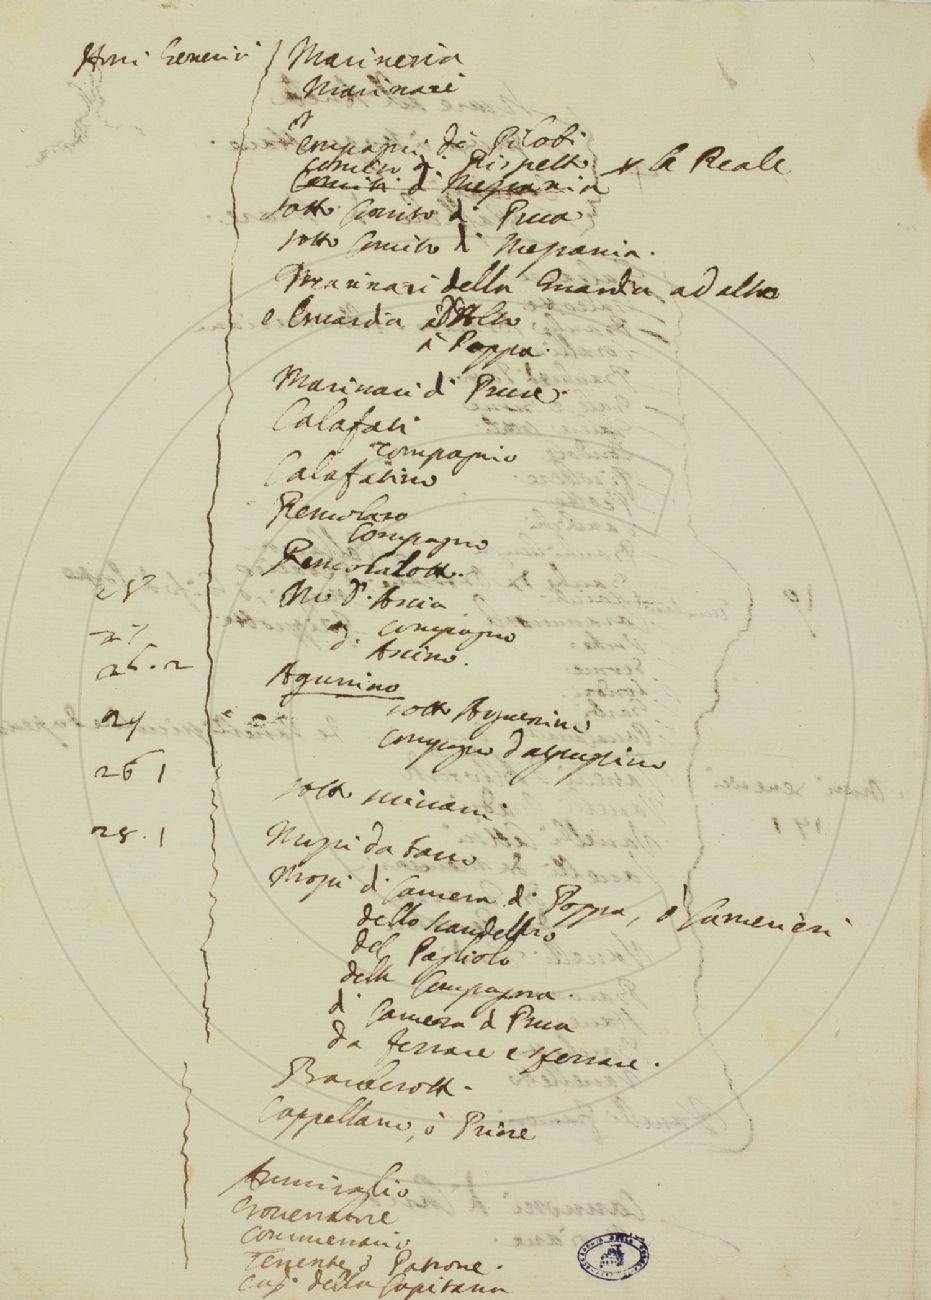 Marineria
Marinari
Compagni di Piloti
Comito di Rispetto + la Reale
Comiti di Mezania
sotto Comito di Prua
sotto Comito di Mezania.
Marinari della Guardia ad alto
e Guardia
à Poppa.
Marinari di Prue.
Calafati
Compagnio
Calafatino
Remolaro
Compagno
Remolarotto.
28 Mo d'Ascia
27 d. compagno
Ascino.
26. 2
Aguzino
24 sotto Aguzino
compagno d'aguzino
26 1
sotto
28. 1 Mozzi da
Mozzi di Camera di Poppa, ò Camerieri
dello scandelaro
del Pagliolo
della Compagna.
di Camera di Prua
da ferrare e sferrare.
Barberotto.
Cappellano, ò Priore
Ammiraglio
Governatore
Commessario
Tenente ò Patrone.
Cap.o della Capitana